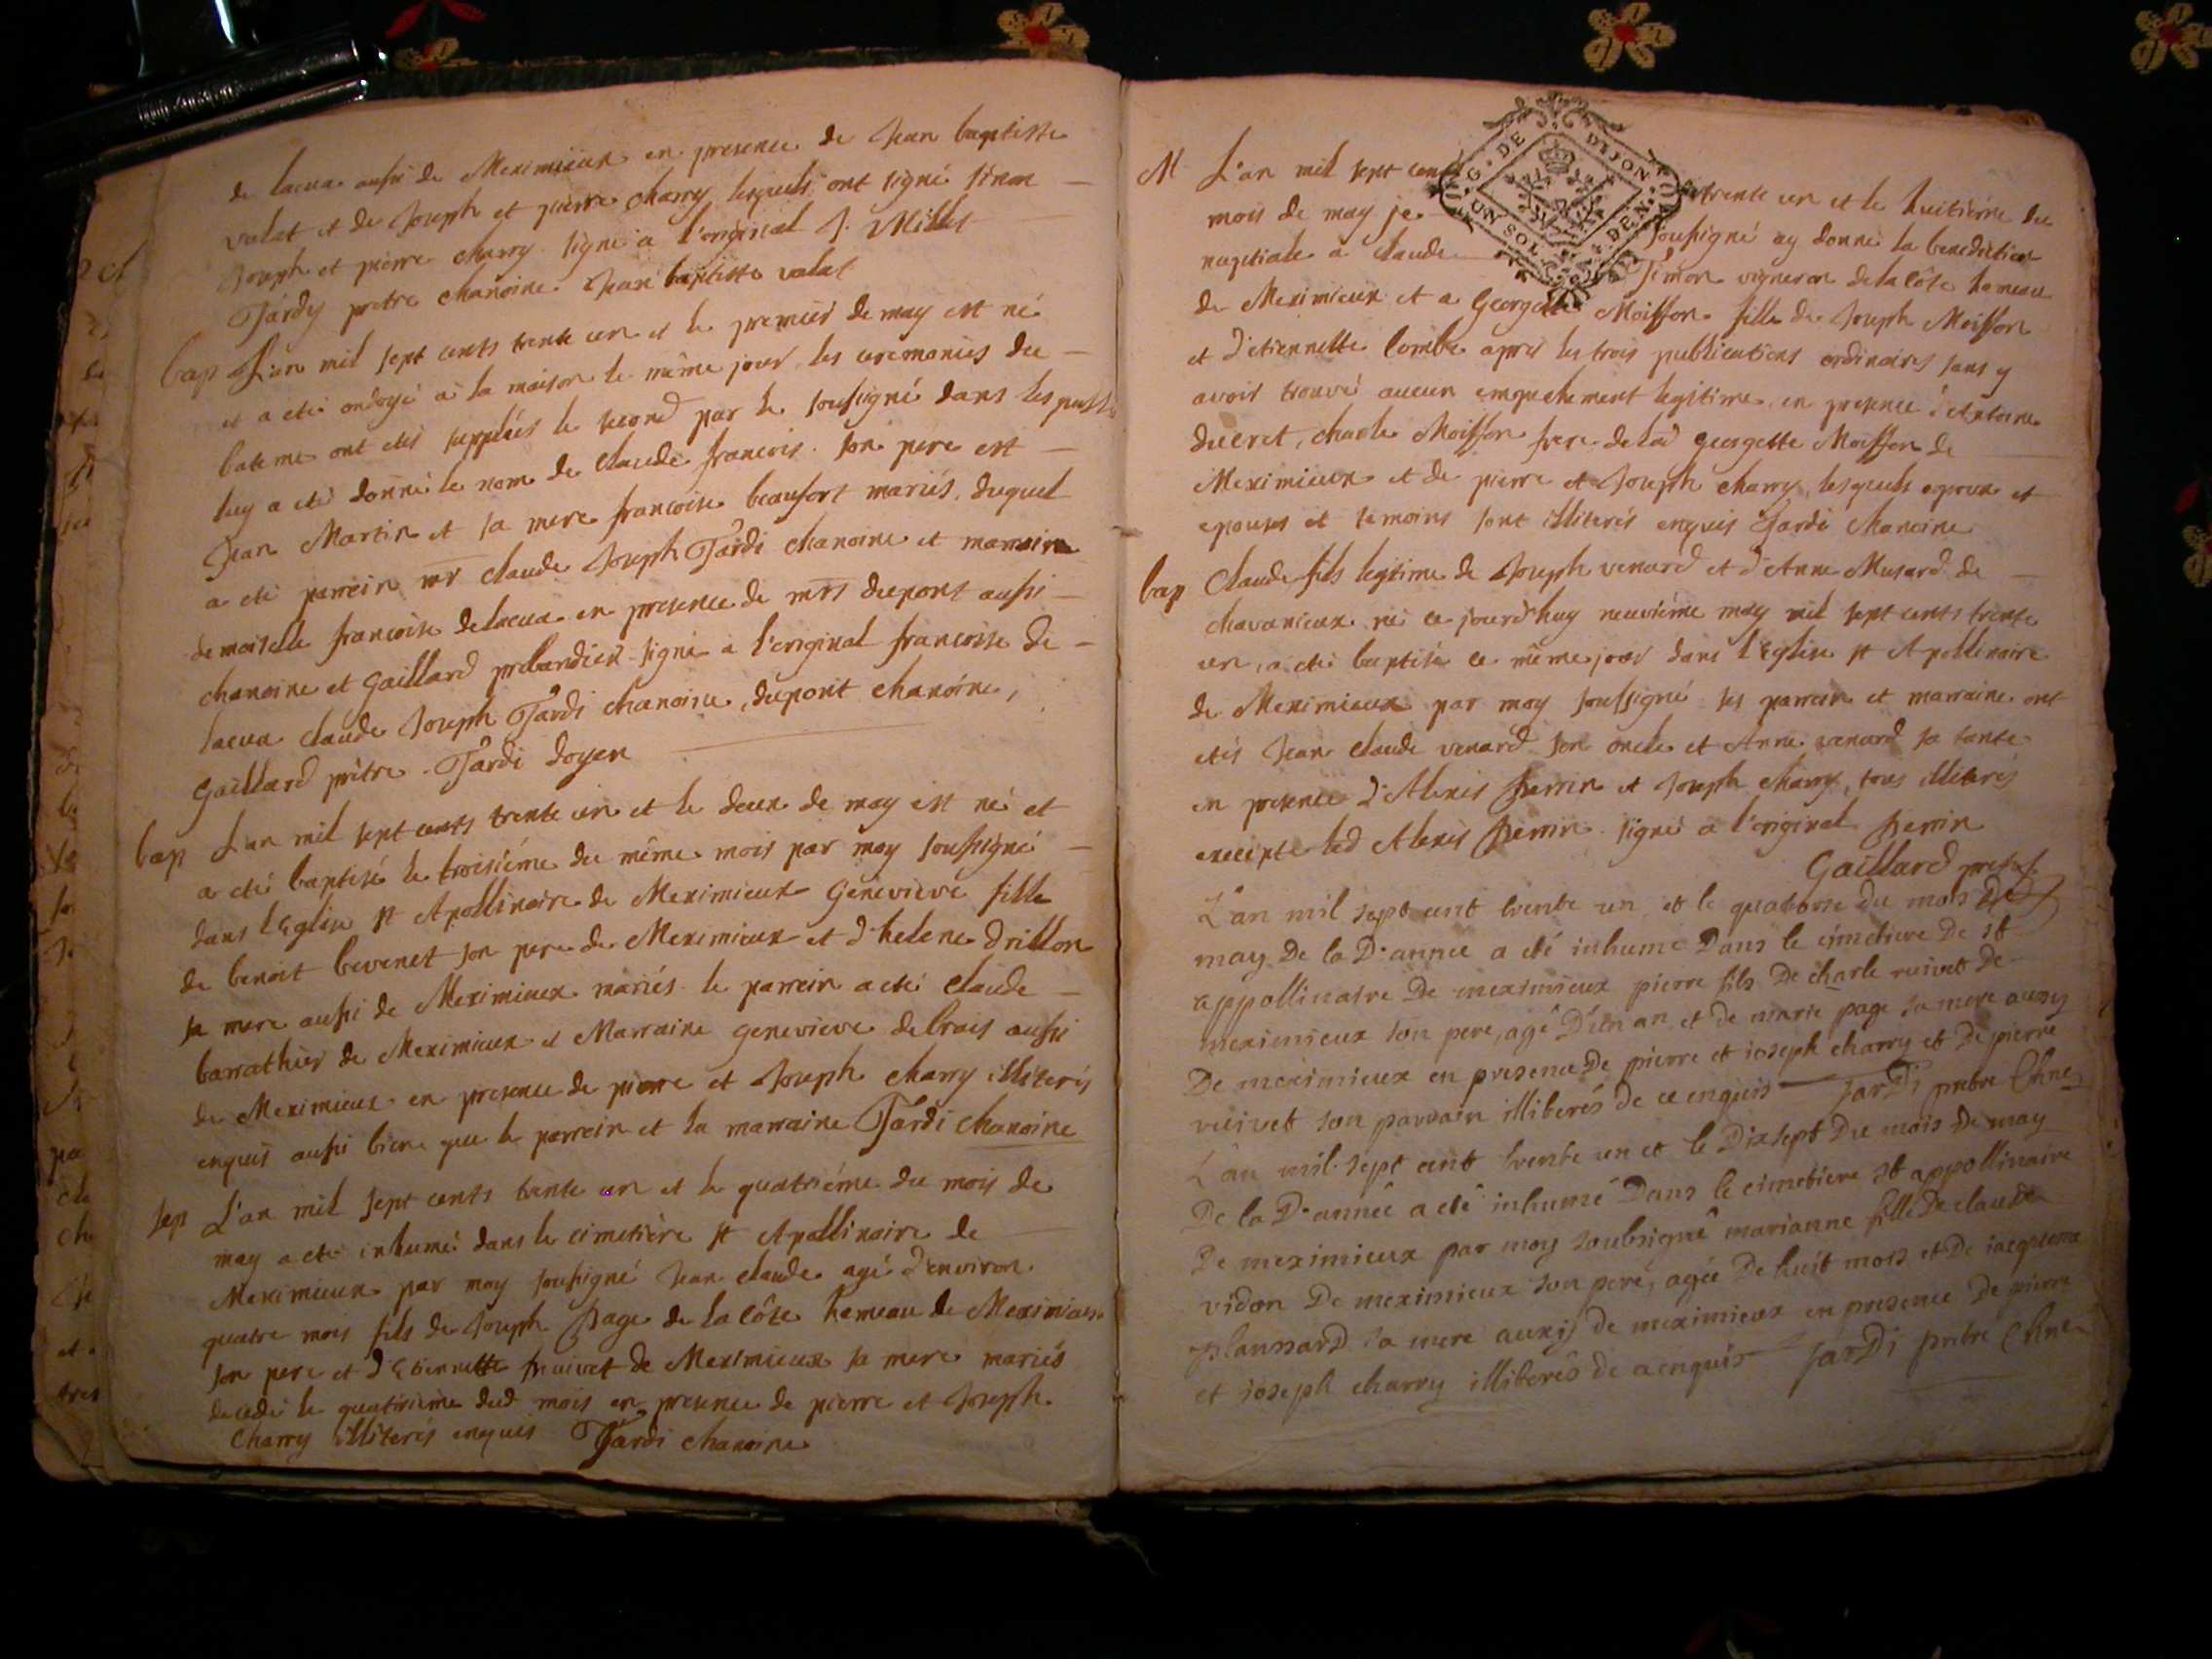 de lacua aussi de Meximieux en presence de Jean baptiste
valat et de Joseph et pierre charry lesquels ont signé sinon
Joseph et pierre charry signé a l'original J. Millet
Tardy pretre chanoine Jean baptiste valat
bap L'an mil sept cents trente un et le premier de may est né
et a eté ondoyé a la maison le même jour les ceremonies du
bateme ont etés supplées le second par le soussigné dans
luy a eté donné le nom de claude francois son pere est
Jean Martin et sa mere francoise beaufort mariés, duquel
a eté parrein mr claude Joseph Tardi chanoine et marraine
demoiselle francoise delacua en presence de mrs dupont aussi
chanoine et Gaillard prebandier signé a l'original francoise de
lacua claude Joseph Tardi chanoine, dupont chanoine,
Gaillard prêtre Tardi doyen
bap L'an mil sept cents trente un et le deux de may est né et
a eté baptisé le troisiéme du même mois par moy soussigné
dans l'Eglise st Apollinaire de Meximieux Genevieve fille
de benoit bevenet son pere de Meximieux et d'helene drillon
sa mere aussi de Meximieux mariés le parrein a eté claude
barrathier de Meximieux et Marraine genevieve debrais aussi
de Meximieux en presence de pierre et Joseph charry illiterés
enquis aussi bien que le parrein et la marraine Tardi chanoine
sep L'an mil sept cents trente un et le quatriéme du mois de
may a eté inhumé dans le cimetière st Apollinaire de
Meximieux par moy soussigné Jean claude agé d'environ
quatre mois fils de Joseph Page de la côte hameau de Meximieux
son pere et d'Etiennette ruivet de Meximieux sa mere mariés
decedé le quatrieme dud mois en presence de pierre et Joseph
Charry illiterés enquis Tardi chanoine
M L'an mil sept cent trente un et le huitiéme du
mois de may je soussigné ay donné la benediction
nuptiale a claude Simon vigneron de la côte hameau
de Meximieux et a Georgette Moisson fille de Joseph Moisson
et d'etiennette combe apres les trois publications ordinaires sans y
avoir trouvé aucun empechement legitime, en presence d'Antoine
ducret, charle Moisson frere de lad georgette Moisson de
Meximieux et de pierre et Joseph charry, lesquels epoux et
epouses et temoins sont illiterés enquis Tardi Chanoine
bap Claude fils legitime de Joseph venard et d'Anne Musard de
chavanieux né ce jourd'huy neuviéme may mil sept cents trente
un, a eté baptisé ce même jour dans l'Eglise st Apollinaire
de Meximieux par moy soussigné ses parrein et marraine ont
etés Jean claude venard son oncle et Anne venard sa tante
en presence d'Alexis Perrin et Joseph charry, tous illiterés
excepte led Alexis Perrin signé a l'original Perrin
Gaillard
L'an mil sept cent trente un et le quatorze du mois de
may De la D. année a eté inhumé Dans le cimetiere De st
appollinaire De meximieux pierre fils De charle ruivet de
meximieux son pere, agé D'un an et de marie page sa mere aussy
De meximieux en presence De pierre et ioseph charry et de pierre
ruivet son parrain illiterés de ce enquis Tardi prebre Chne
L'an mil sept cent trente un et le Dixsept Du mois de may
De la D. année a eté inhumé Dans le cimetiere st appollinaire
De meximieux par moy soubsigné marianne fille De claude
vidon De meximieux son pere, agée De huit mois et De iacqueme
planssard sa mere aussy de meximieux en presence De pierre
et ioseph charry illiterés de ce enquis Tardi prebre Chne
G. DE DIJON
UN SOL
DEN.